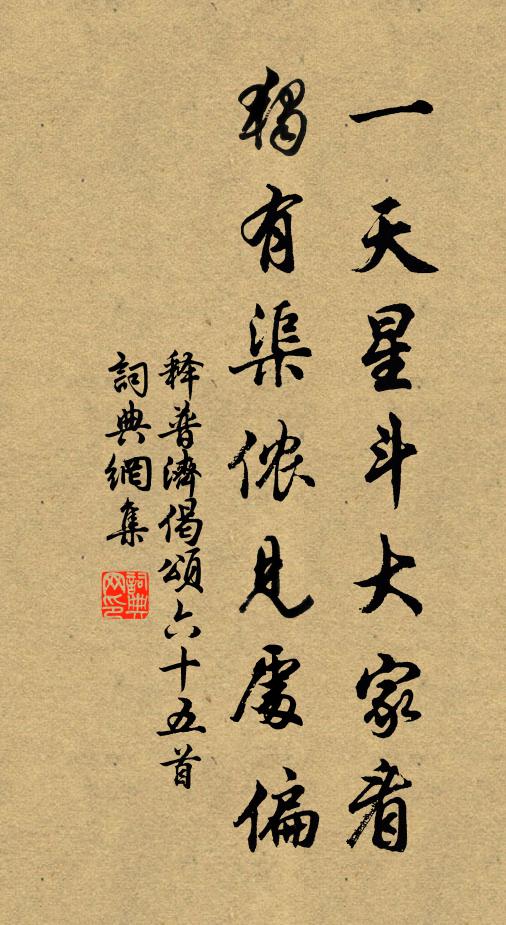 一天星斗大家看
獨有渠侬見處偏
释普濟偈頌六十五首
詞典網集
詞典网印